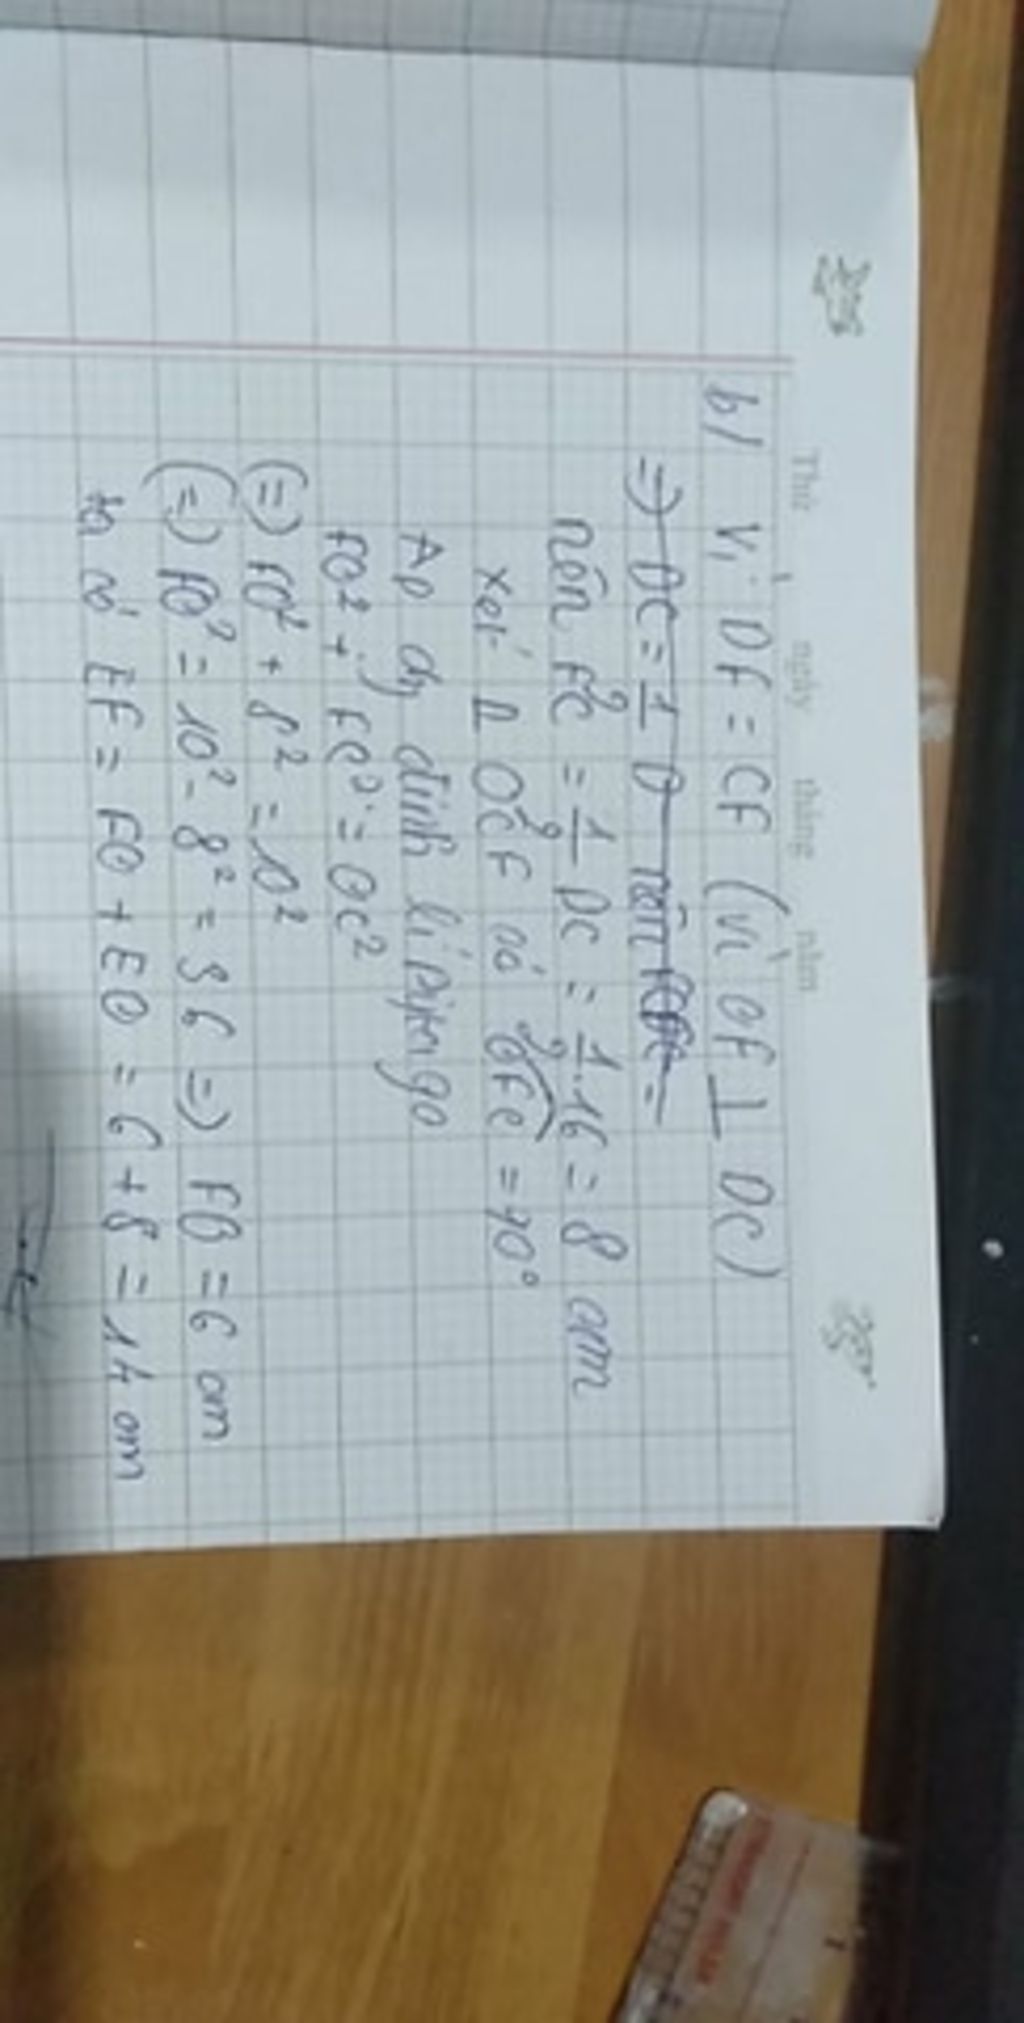 Thứ ngày tháng năm
b/ Vì DF = CF (vì OF ⊥ DC)
=> DC = 1/ D nên =
nên FC = 1/2 DC = 1/2 . 16 = 8 cm
Xét Δ OCF có OFC = 90°
Áp dụng định lí Pytago
FO² + FC² = OC²
(=) FO² + 8² = 10²
(=) FO² = 10² - 8² = 36 => FO = 6 cm
ta có EF = FO + EO = 6 + 8 = 14 cm